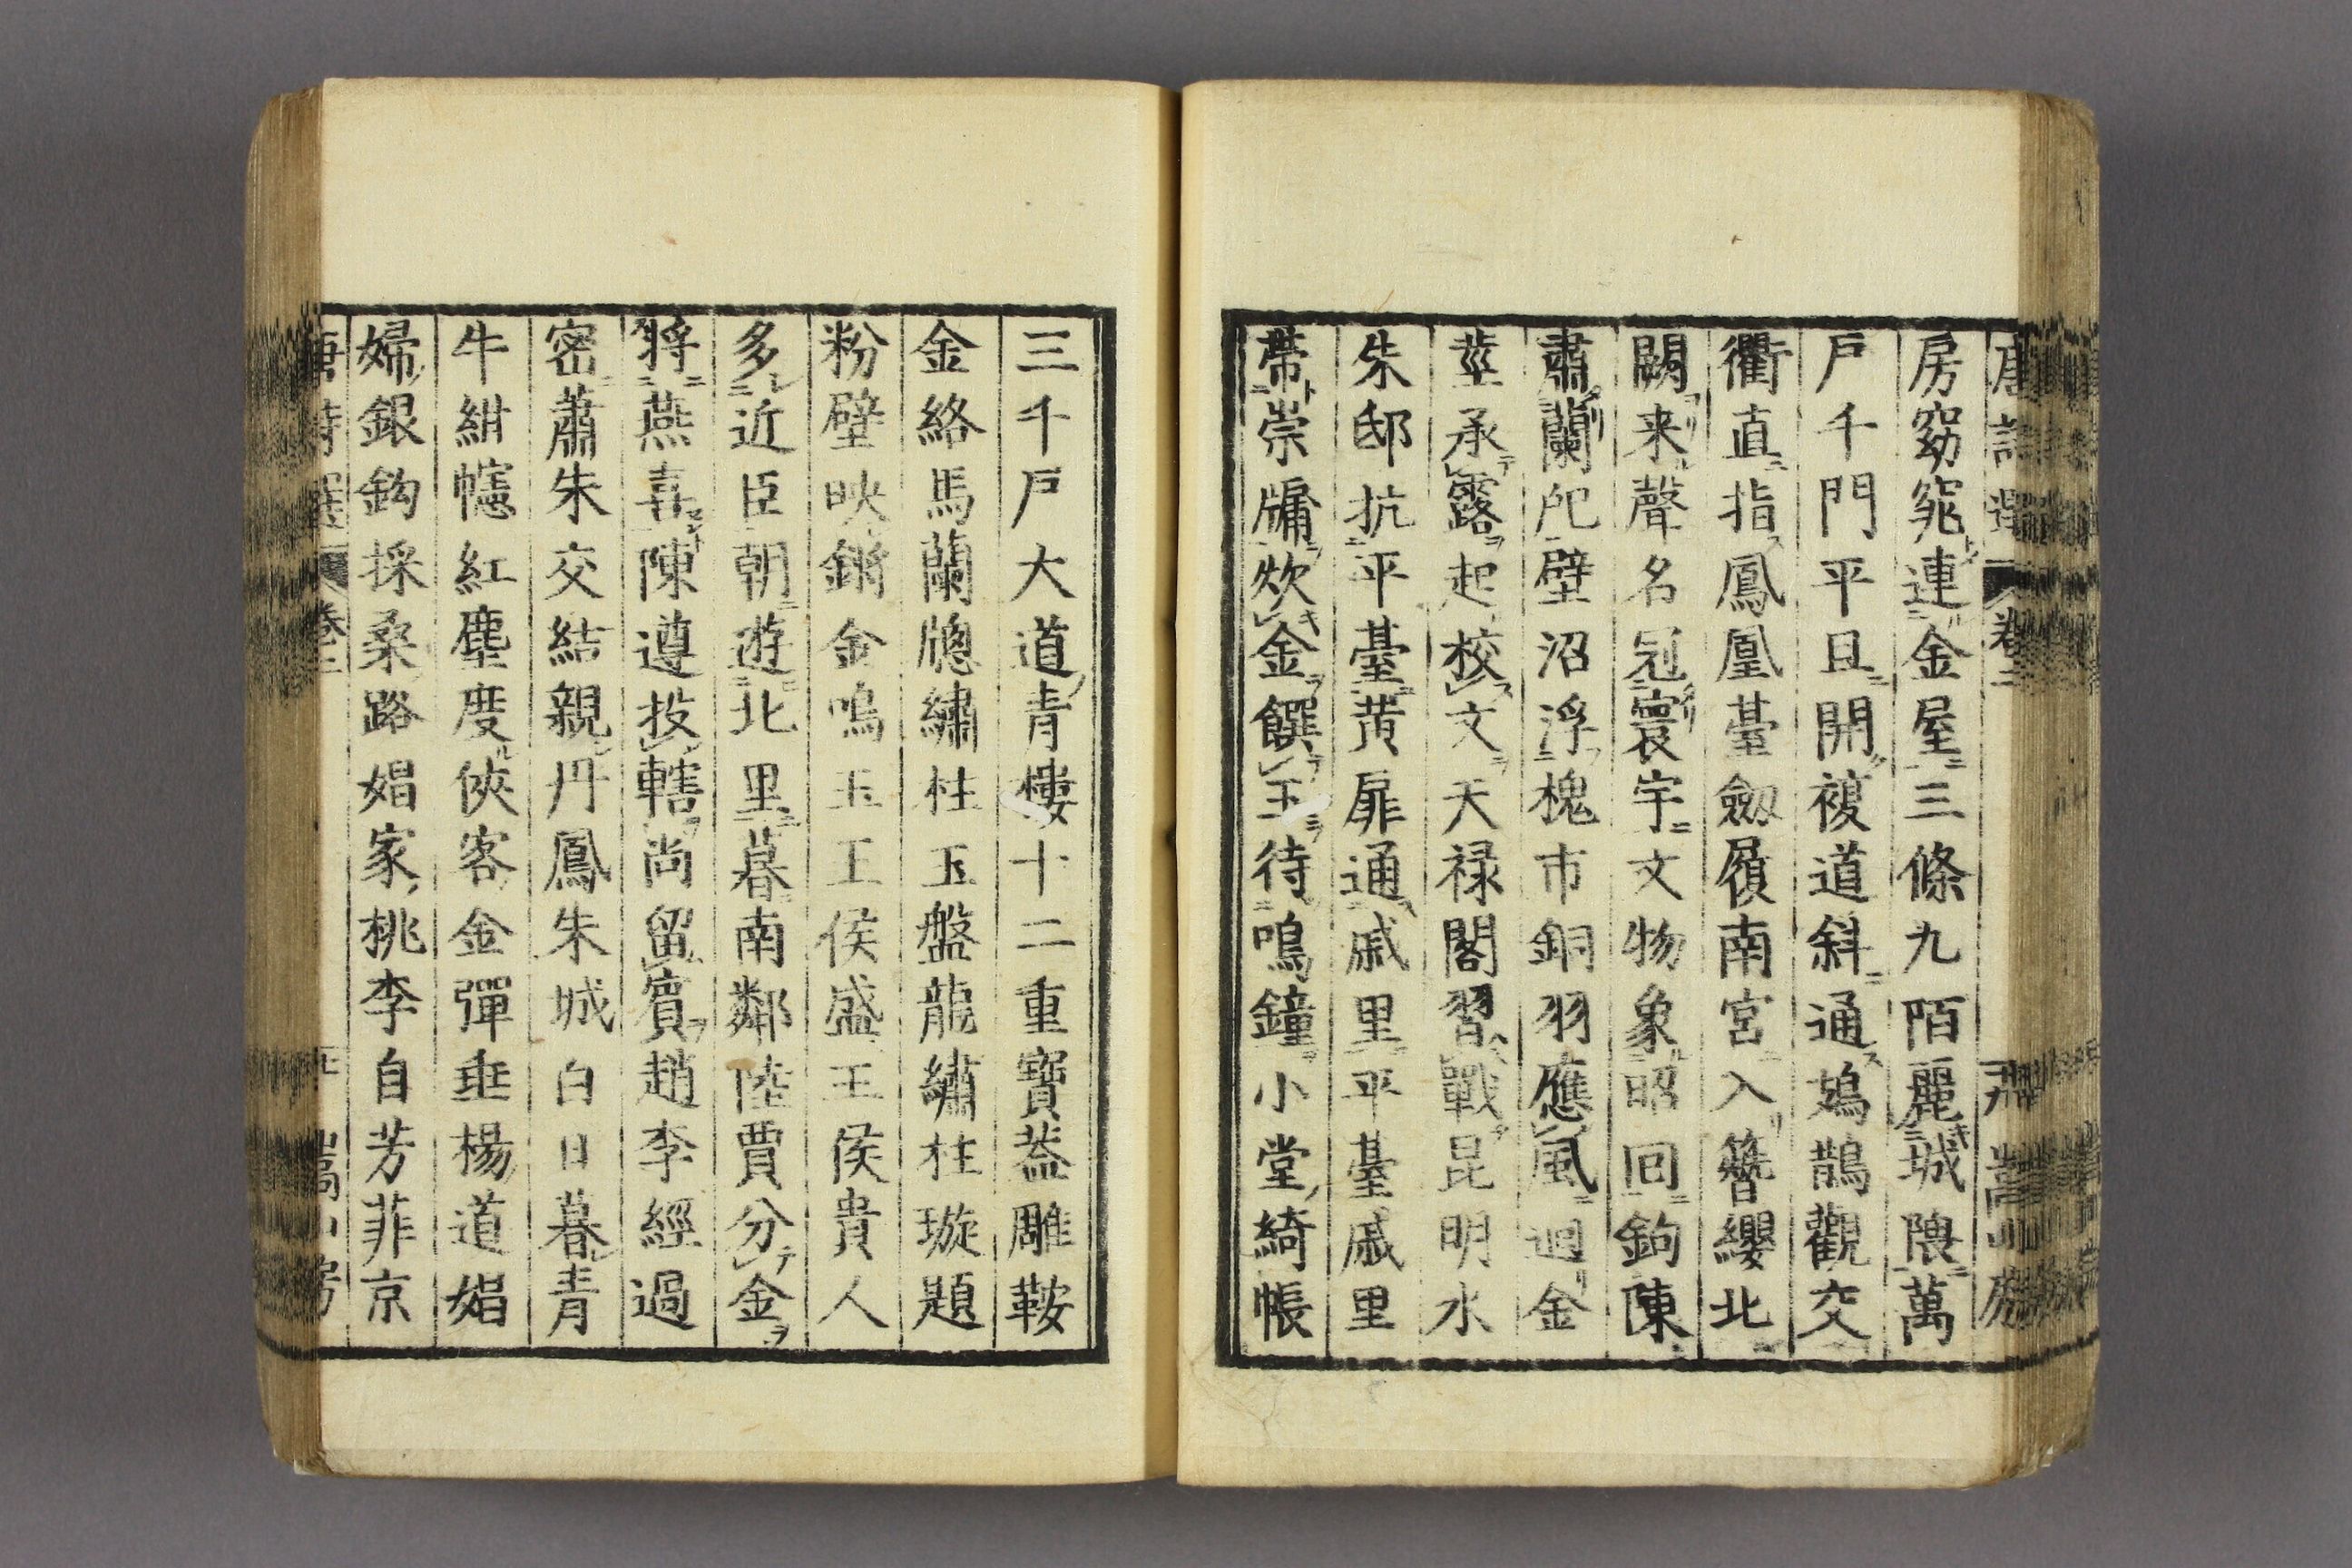 唐詩選 卷二
房窈窕連金屋三條九陌麗城隈萬
戸千門平旦開複道斜通鳷鵲觀交
衢直指鳳凰臺劔履南宮入簪纓北
闕来聲名冠寰宇文物象昭回鉤陳
肅蘭戺壁沼浮槐市銅羽應風迴金
莖承露起校文天禄閣習戰昆明水
朱邸抗平臺黄扉通戚里平臺戚里
帶崇牅炊金饌玉待鳴鐘小堂綺帳
三千戸大道青樓十二重寶葢雕鞍
金絡馬蘭牕繡柱玉盤龍繡柱璇題
粉壁映鏘金鳴玉王侯盛王侯貴人
多近臣朝遊北里暮南鄰陸賈分金
將燕喜陳遵投轄尚留賓趙李經過
密蕭朱交結親丹鳳朱城白日暮青
牛紺幰紅塵度俠客金彈垂楊道娼
婦銀鈎採桑路娼家桃李自芳菲京
唐詩選 卷二 嵩山房